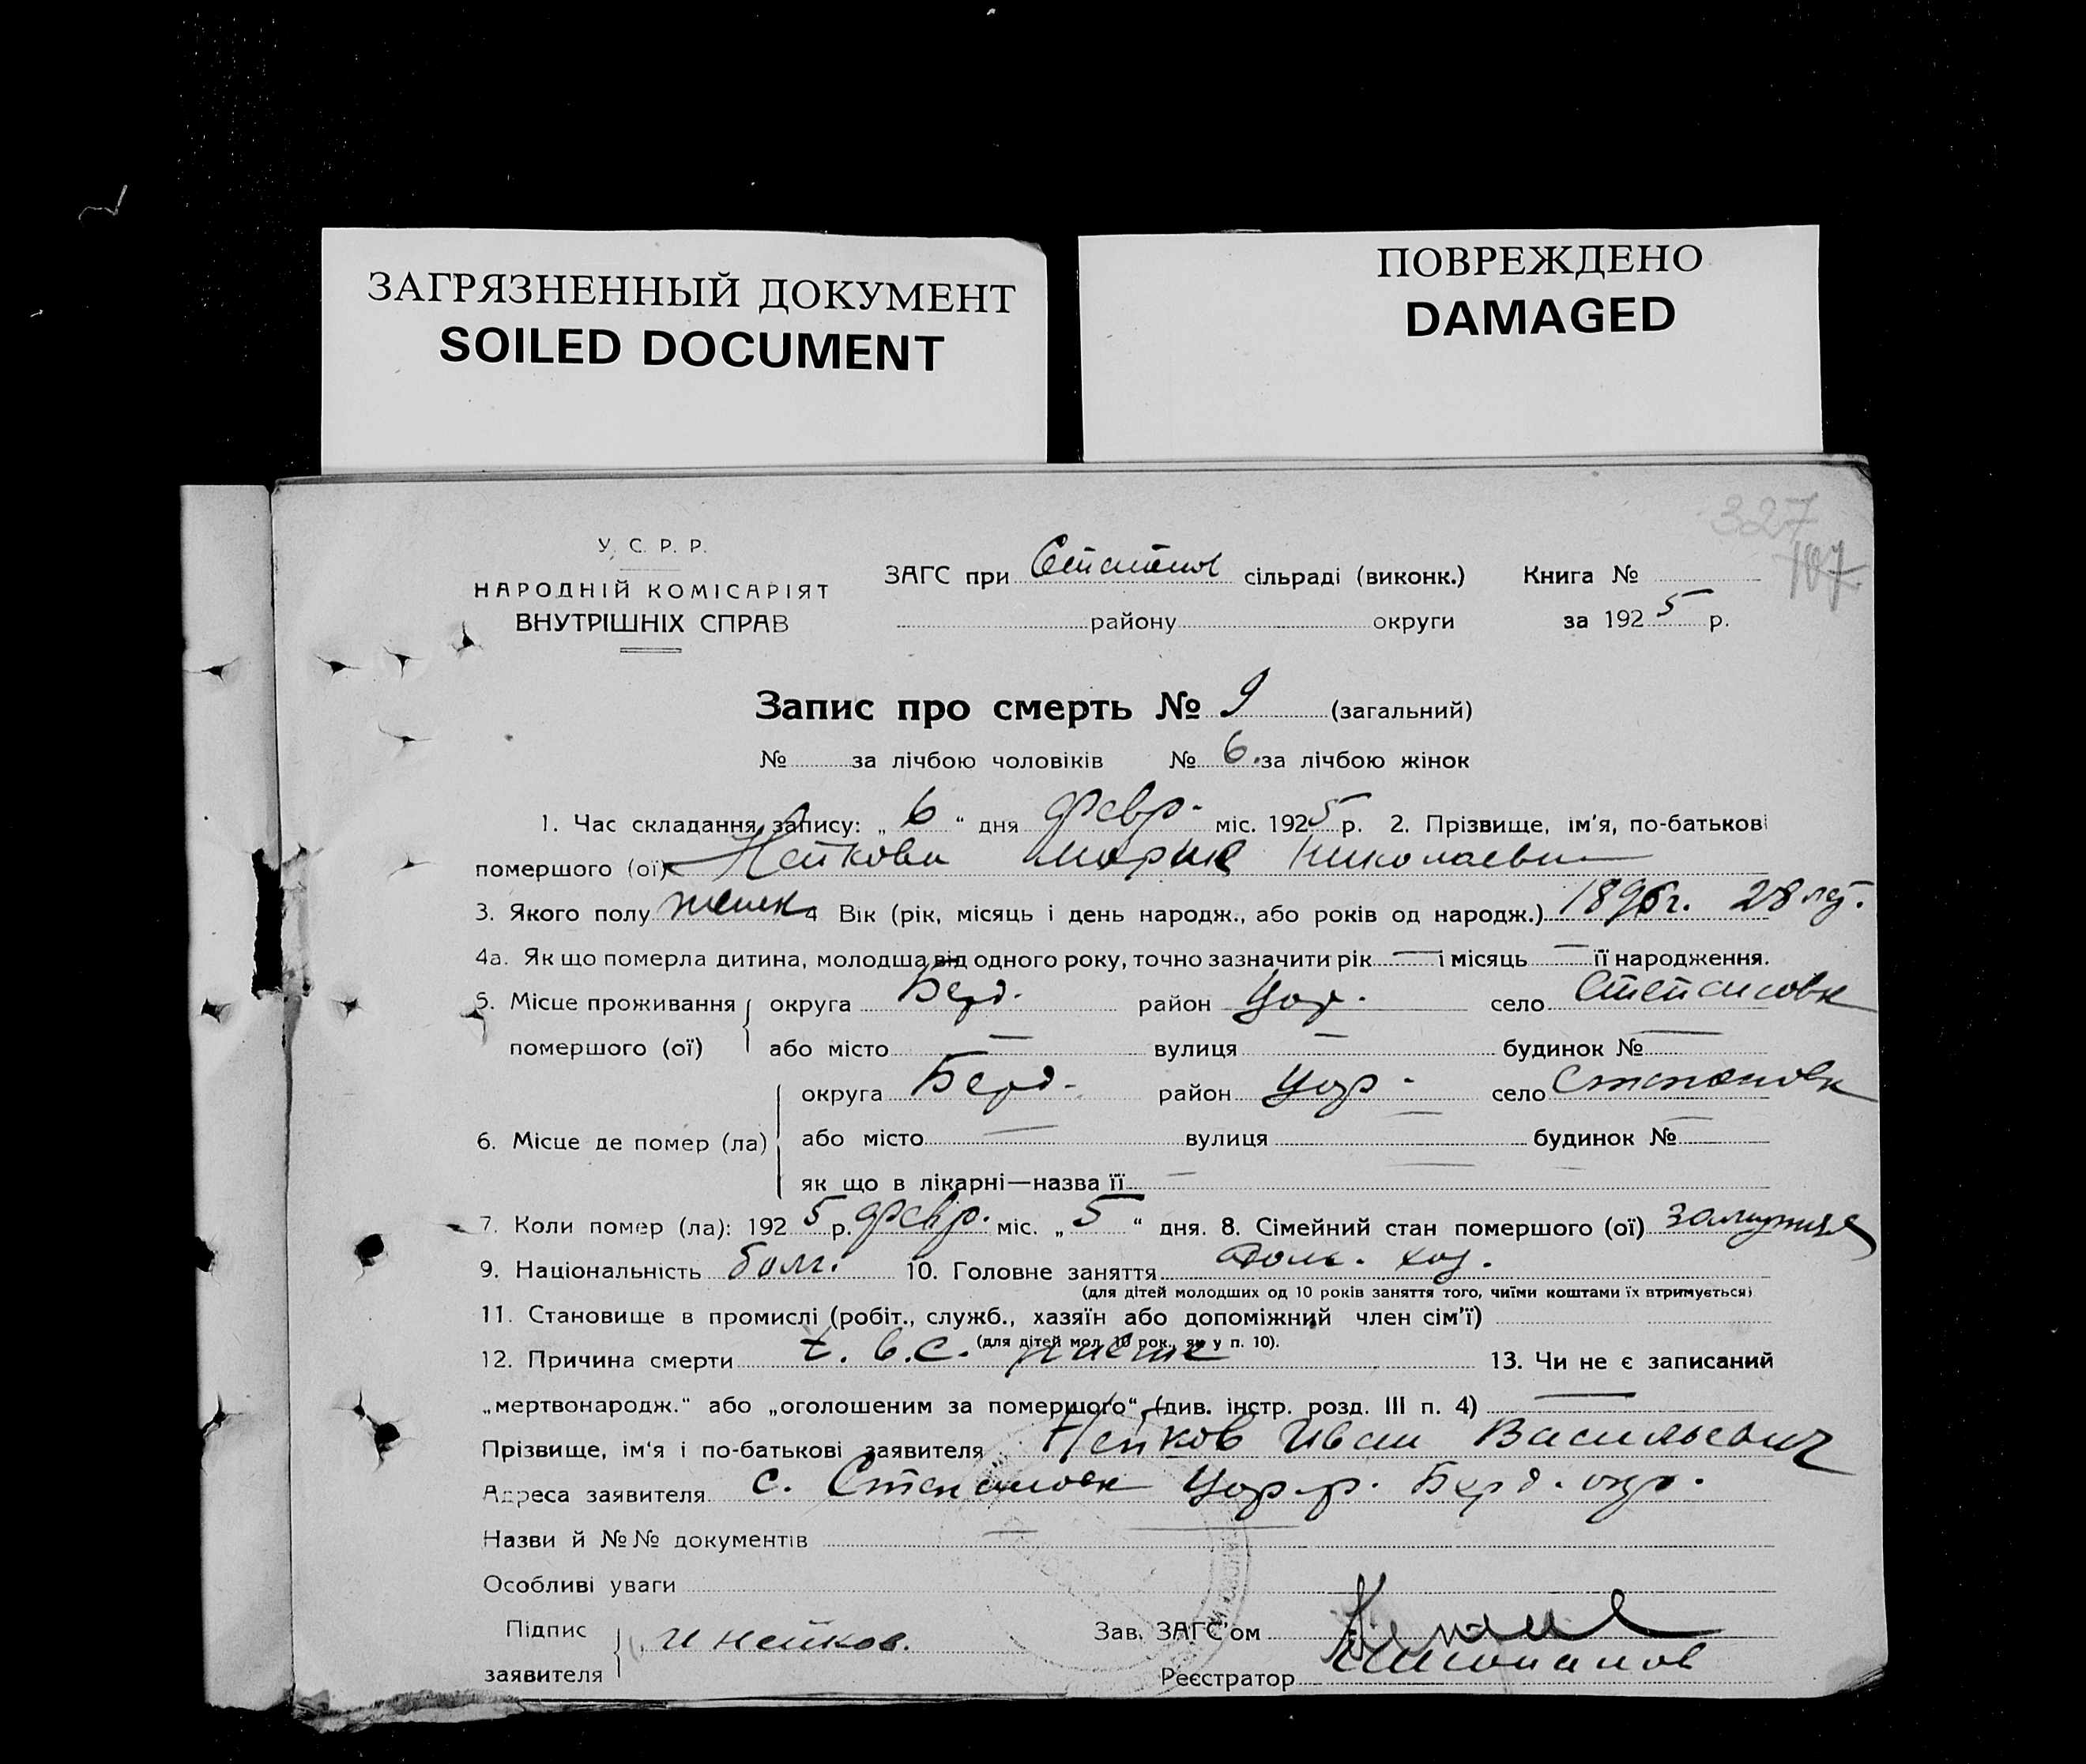 ЗАГРЯЗНЕННЫЙ ДОКУМЕНТ
SOILED DOCUMENT
ПОВРЕЖДЕНО
DAMAGED
327
107
У. С. Р. Р.
НАРОДНІЙ КОМІСАРІЯТ
ВНУТРІШНІХ СПРАВ
ЗАГС при Степанов сільраді (виконк.) Книга №
району округи за 1925 р.
Запис про смерть № 9 (загальний)
№ за лічбою чоловіків № 6. за лічбою жінок
1. Час складання запису: „6“ дня февр. міс. 1925 р. 2. Прізвище, ім'я, по-батькові
помершого (ої) Нейкова Мария Николаевн
3. Якого полу женск 4 Вік (рік, місяць і день народж., або років од народж.) 1896г. 28 лет.
4а. Як що померла дитина, молодша від одного року, точно зазначити рік — і місяць — її народження.
5. Місце проживання округа Берд. район Цар. село Степановк
помершого (ої) або місто — вулиця — будинок № —
округа Берд. район Цар. село Степановк
6. Місце де помер (ла) або місто — вулиця — будинок № —
як що в лікарні—назва її —
7. Коли помер (ла): 1925 р. февр. міс. „5“ дня. 8. Сімейний стан помершого (ої) замужняя
9. Національність болг. 10. Головне заняття дом. хоз.
(для дітей молодших од 10 років заняття того, чиїми коштами їх втримується)
11. Становище в промислі (робіт., служб., хазяїн або допоміжний член сім'ї)
(для дітей мол. 10 рок., як у п. 10).
12. Причина смерти 13. Чи не є записаний
„мертвонародж.“ або „оголошеним за помершого“ (див. інстр. розд. III п. 4) —
Прізвище, ім'я і по-батькові заявителя Нейков Иван Васильевич
Адреса заявителя с. Степановк Цар. р. Берд. окр.
Назви й №№ документів —
Особливі уваги
Підпис заявителя И Нейков.
Зав. ЗАГС'ом
Реєстратор